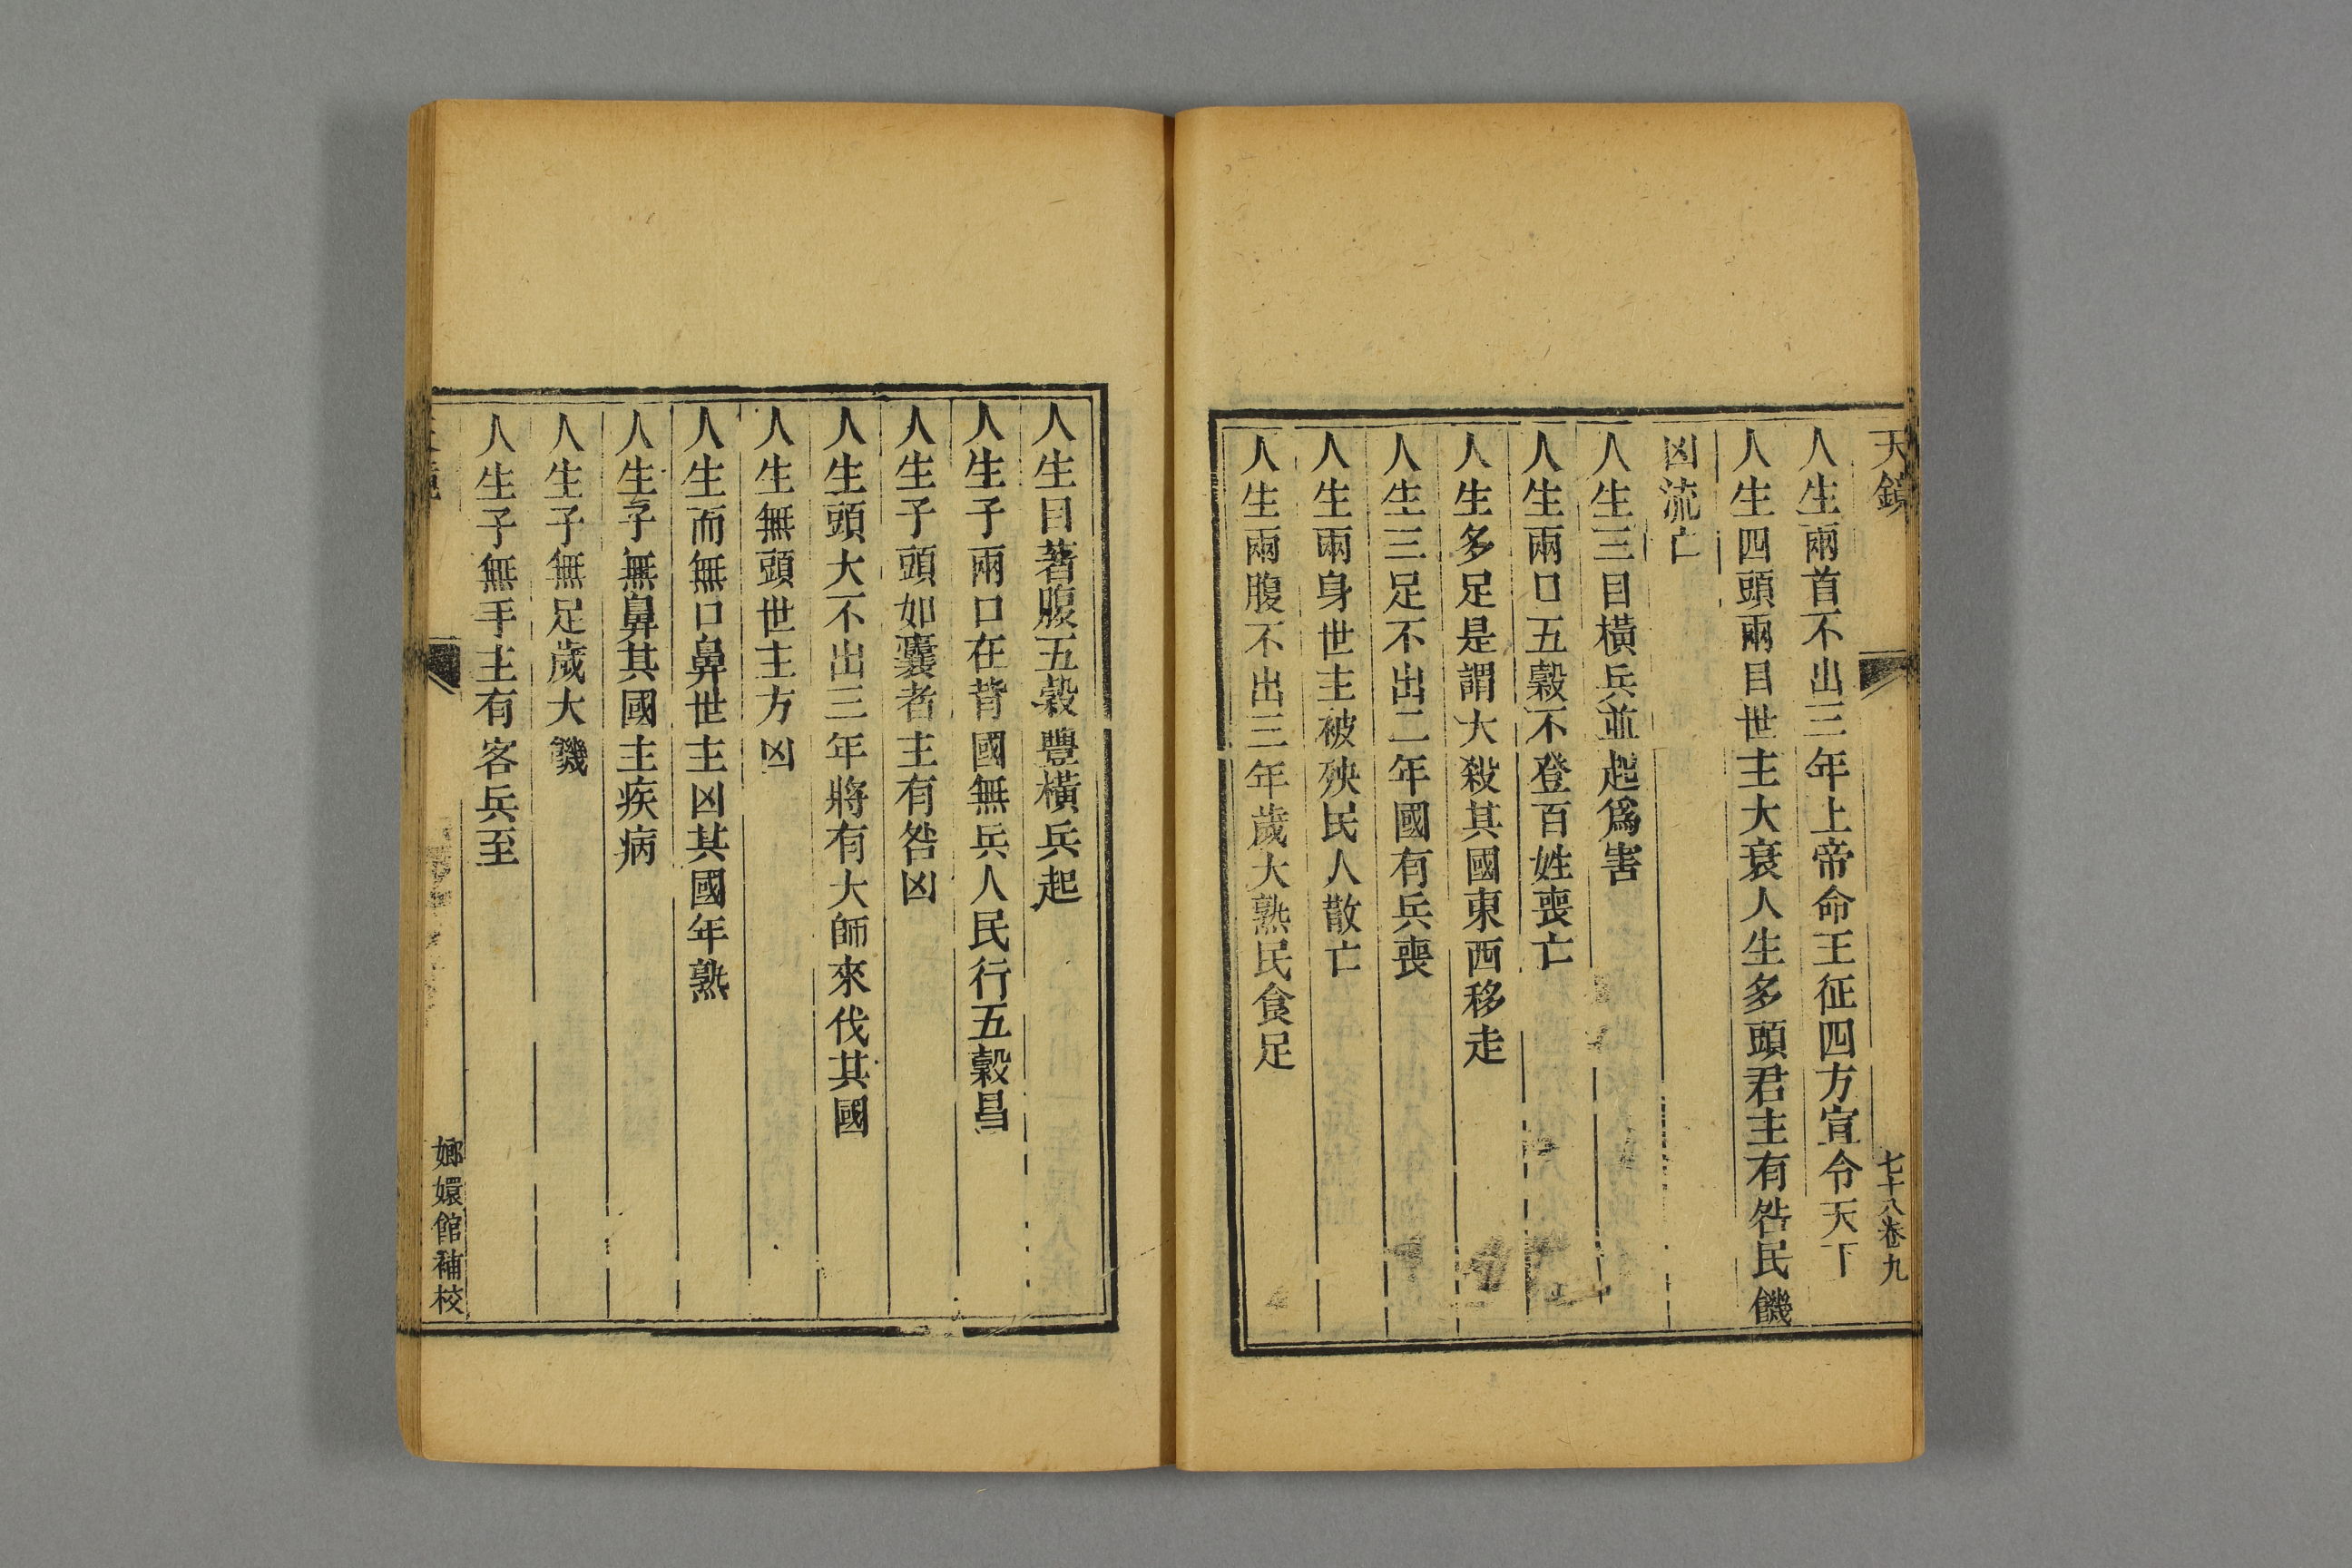 天鏡
七十八卷九
人生兩首不出三年上帝命王征四方宜令天下
人生四頭兩目世主大衰人生多頭君主有咎民饑
凶流亡
人生三目橫兵並起爲害
人生兩口五糓不登百姓喪亡
人生多足是謂大殺其國東西移走
人生三足不出二年國有兵喪
人生兩身世主被殃民人散亡
人生兩腹不出三年歲大熟民食足
人生目著腹五糓豐橫兵起
人生子兩口在背國無兵人民行五糓昌
人生子頭如囊者主有咎凶
人生頭大不出三年將有大師來伐其國
人生無頭世主方凶
人生而無口鼻世主凶其國年熟
人生子無鼻其國主疾病
人生子無足歲大饑
人生子無手主有客兵至
嫏嬛館補校